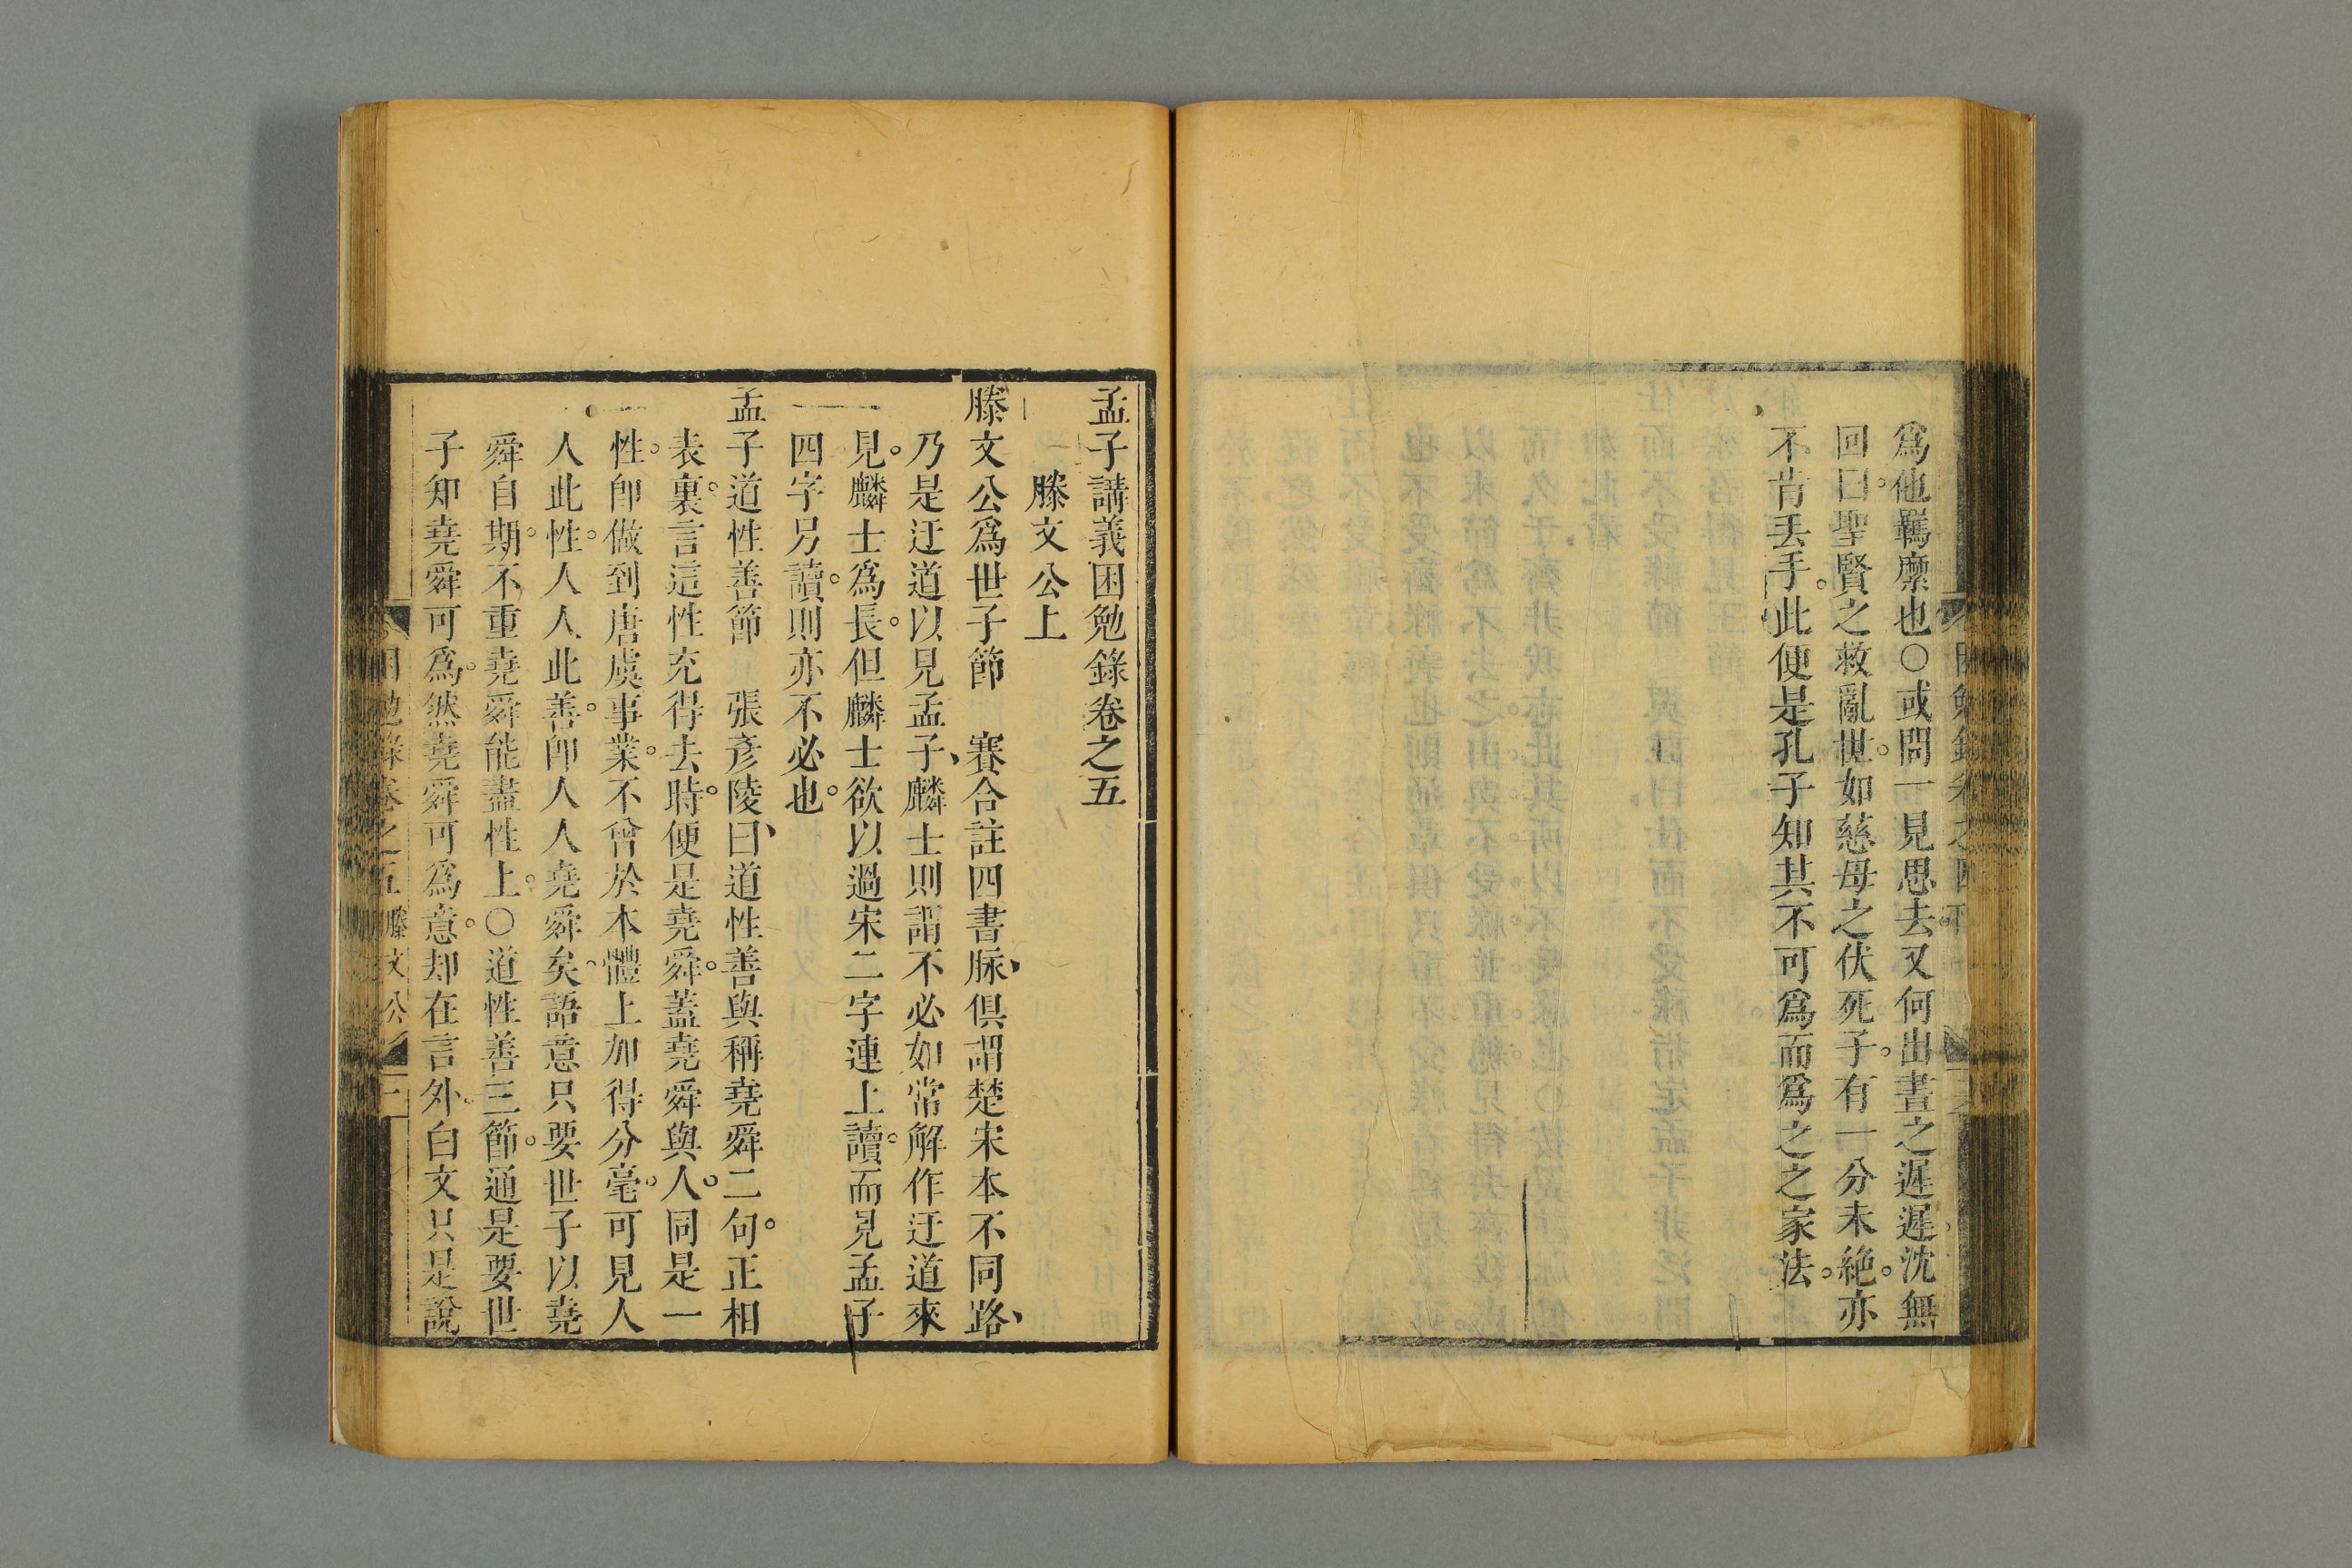 爲他羈縻也○或問一見思去又何出晝之遲遲沈無
回曰聖賢之救亂世如慈母之伏死子有一分未絶亦
不肯丟手此便是孔子知其不可爲而爲之之家法
孟子講義困勉錄卷之五
滕文公上
滕文公爲世子節　賽合註四書脉俱謂楚宋本不同路
乃是迂道以見孟子麟士則謂不必如常解作迂道來
見麟士爲長但麟士欲以過宋二字連上讀而見孟子
四字另讀則亦不必也
孟子道性善節　張彥陵曰道性善與稱堯舜二句正相
表裏言這性充得去時便是堯舜蓋堯舜與人同是一
性卽做到唐虞事業不曾於本體上加得分毫可見人
人此性人人此善卽人人堯舜矣語意只要世子以堯
舜自期不重堯舜能盡性上○道性善三節通是要世
子知堯舜可爲然堯舜可爲意却在言外白文只是說
困勉錄卷之五 滕文公 一